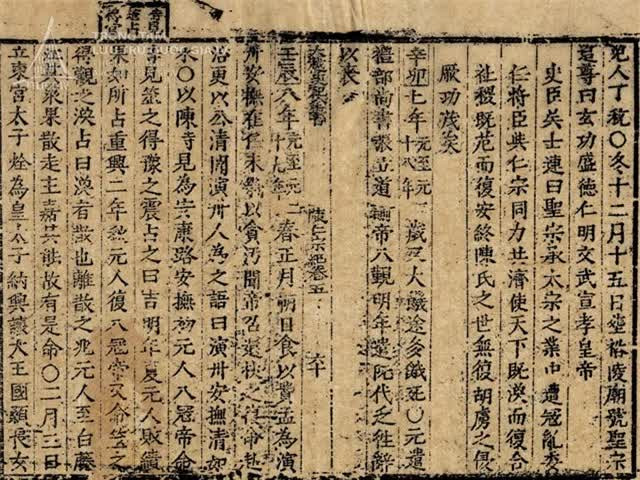 TRUNG TÂM
LƯU TRỮ QUỐC GIA IV
兒人丁稅○冬十二月十五日葬裕陵廟號聖宗
尊曰玄功盛德仁明文武宣孝皇帝
史臣吳士連曰聖宗承太宗之業中遭寇亂委
任將臣與仁宗同力共濟使天下既渙而復合
社稷既危而復安終陳氏之世無復胡虜之侵
厥功茂矣
辛卯七年元至元二十八年歲大饑途多餓死○元遣
禮部尚書張立道諭帝入覲明年遣阮代乏往辭
以喪
陳仁宗紀卷五 六十
壬辰八年元至元二春正月朔日食以費孟為演
州安撫在任未幾以貪污聞帝召還杖之復命赴
治更以公清聞演州人為之語曰演州安撫清如
水○以陳時見為天康路安撫初元人入寇帝命
時見筮之得豫之震占之曰吉明年夏元人敗績
果如所占重興二年秋元人復入寇帝又命筮之
得觀之渙占曰渙者散也離散之兆元人至白藤
江其眾果散走主嘉其能故有是命○二月三日
立東宮太子烇為皇太子納興讓大王國顙長女